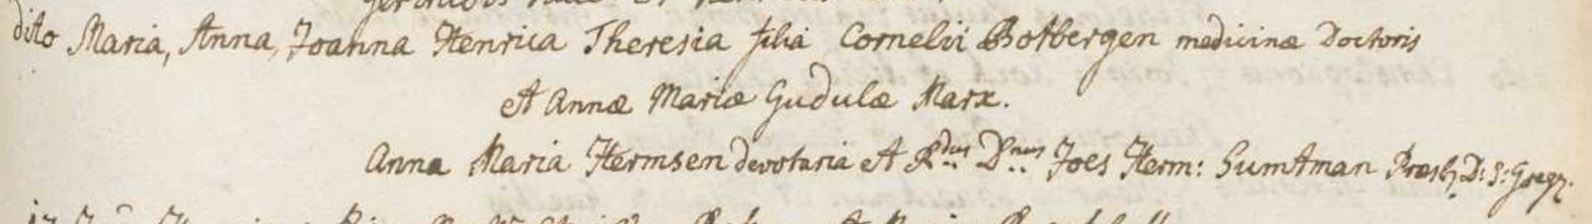 dito Maria, Anna, Joanna Henrica Theresia filia Cornelii Botbergen medicinæ Doctoris
et Annæ Mariæ Gudulæ Marx.
Anna Maria Hermsen devotaria et Rdus Dnus Joes Herm: Sumtman Presb. D: S: Greg.